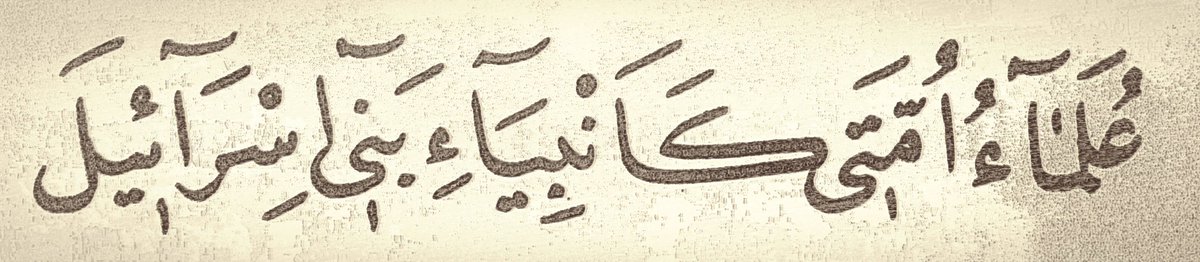 عُلَمَآءُ أُمَّتَى كَاَنْبِيَآءِ بَنَىٓ اِسْرَآئِيلَ